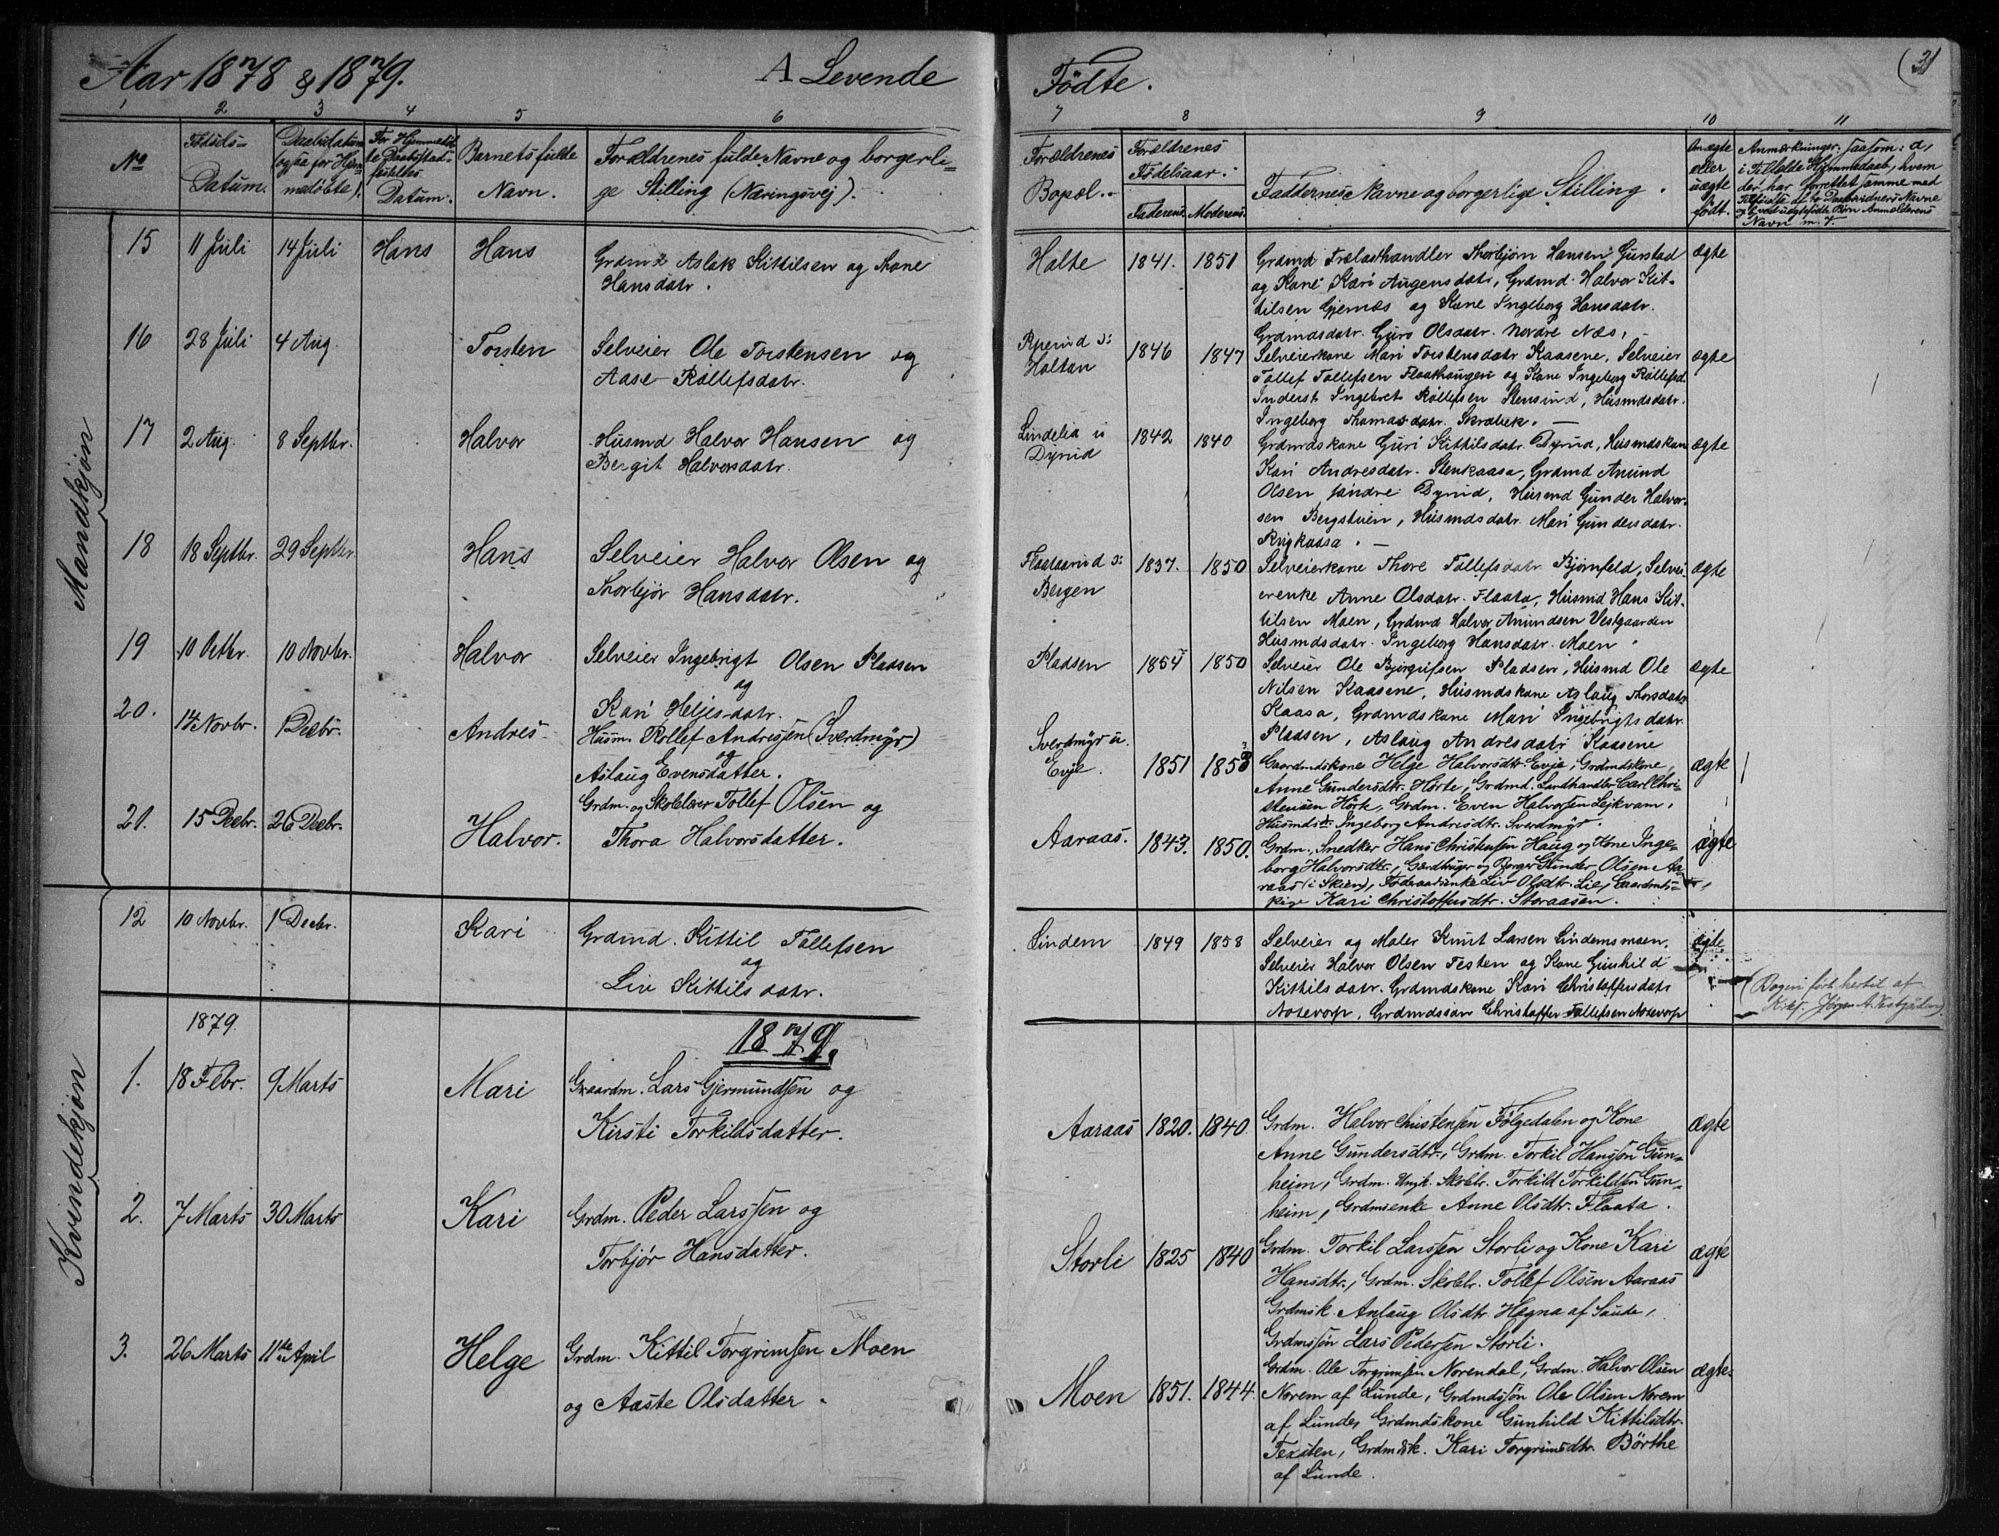 Aar 1878 & 1879.
A Levende
Fødte.
31
1 2 3 4 5 6
7 8 9 10 11
No
Fødsels-Datum.
Daabsdatum (ogsaa for Hjemmedøbte).
Datum.
Barnets fulde Navn.
Forældrenes fulde Navne og borgerlige Stilling (Næringsvej).
Forældrenes Bopæl.
Forældrenes Fødselsaar.
Faderens. Moderens.
Faddernes Navne og borgerlige Stilling.
Ægte eller uægte født.
Mandkjøn
15 11 Juli 14 Juli Hans Hans
Grdmd Aslak Kittilsen og Kone
Hansdatr.
Halte 1841. 1851
Grdmd Frælasthandler Thorbjørn Hansen Gurstad
og Kone Kari Augensdatr, Grdmd. Halvor Kit-
tilsen Gjernæs og Kone Ingeborg Hansdatr.
Grdmdsdatr. Guro Olsdatr. Nordre Næs.
ægte
16 28 Juli 4 Aug. Torsten
Selveier Ole Torstensen og
Aase Røllefsdatr.
Holtan 1846 1847
Selveierkone Mari Torstensdatr Kaasene, Selveier
Tollef Tollefsen Flaathaugen og Kone Ingeborg Røllefsd.
Inderst Ingebret Røllefsen Stensrud, Husmdsdatr.
Ingeborg Thomasdatr. Skrabek.
ægte
17 2 Aug. 8 Septbr. Halvor
Husmd Halvor Hansen og
Bergit Halvorsdatr.
Lindelid u
Dyrud 1842 1840
Grdmdskone Guri Kittilsdatr Dyrud, Husmdskone
Kari Andresdatr. Stenkaasa, Grdmd Amund
Olsen søndre Dyrud, Husmd Gunder Halvor-
sen Bergstuen, Husmdsdatr. Mari Gundersdatr.
Rugkaasa.
ægte
18 18 Septbr. 29 Septbr Hans
Selveier Halvor Olsen og
Thorbjør Hansdatr.
Bergen 1837. 1850
Selveierkone Thore Tollefsdatr Bjørnfeld, Selvei-
erenke Anne Olsdatr. Flaata, Husmd Hans Kit-
tilsen Moen, Grdmd Halvor Amundsen Vestgaarden
Husmdsdatr. Ingeborg Hansdatr. Moen
ægte
19 10 Octbr. 10 Novbr. Halvor
Selveier Ingebrigt Olsen Pladsen
og
Kari Heljesdatr.
Pladsen 1854 1850
Selveier Ole Bjørgufsen Pladsen, Husmd Ole
Nilsen Kaasene, Husmdskone Aslaug Thorsdatr
Kaasa, Grdmdskone Mari Ingebrigtsdatr.
Pladsen, Aslaug Andresdatr Kaasene
ægte
20. 14 Novbr. 1 Decbr. Andres
Husm. Rollef Andressen (Sverdmyr)
og
Aslaug Evensdatter.
Sverdmyr u.
Evje. 1851
Gaardmdskone Helge Halvorsdtr. Evje, Grdmdskone
Anne Gundersdtr. Hörte, Grdmd. Landhandler Carl Chri-
stensen Hörte, Grdm. Even Halvorsen Lejkvam,
Husmdsdtr Ingeborg Andresdtr. Sverdmyr.
ægte
21. 15 Decbr. 26 Decbr. Halvor.
Grdm. og Skolelærer Tollef Olsen og
Thora Halvorsdatter.
Aaraas. 1843. 1850.
Grdm. Snedker Hans Christensen Haug og Kone Inge-
borg Halvorsdtr, Gardbruger og Borger Gunder Olsen Aa-
raas (i Skien), Föderaadsenke Liv Olsdtr. Lie, Gaardmds-
pige Kari Christoffersdtr. Storaasen.
ægte
Kvindekjøn
12 10 Novbr. 1 Decbr. Kari
Grdmd. Kittil Tollefsen
og
Liv Kittilsdatr.
Lindem 1849 1858
Selveier og Maler Knut Larsen Lindemsmoen,
Selveier Halvor Olsen Testen og Kone Gunhild
Kittilsdatr. Grdmdskone Kari Christoffersdatr
Notevorp, Grdmdssøn Christoffer Tollefsen Notevorp
ægte
(Bogen ført hertil af
Kirks. Jørgen A. Vestgården)
1879.
1879.
1. 18 Febr. 9 Marts Mari
Gaardm. Lars Gjermundsen og
Kirsti Torkildsdatter.
Aaraas 1820. 1840.
Grdm. Halvor Christensen Følgedalen og Kone
Anne Gundersdtr, Grdm. Torkil Hansson Gun-
heim, Grdm. Ungk. Skolelr. Torkild Torkildsen Gun-
heim, Grdmsenke Anne Olsdtr. Flaata.
ægte
2. 7 Marts 30 Marts Kari
Grdm. Peder Larssen og
Torbjør Hansdatter.
Storli 1825 1840
Grdm. Torkil Larssen Storli og Kone Kari
Hansdtr, Grdm. Skolelr. Tollef Olsen Aaraas
Grdmsk Anlaug Olsdtr. Hogna af Saude,
Grdmssøn Lars Pedersen Storli.
ægte
3. 26 Marts 11te April Helge
Grdm. Kittil Torgrimsen Moen
og Aaste Olsdatter.
Moen 1851. 1844.
Grdm. Ole Torgrimsen Norendal, Grdm. Halvor Olsen
Norem af Lunde, Grdmdssøn Ole Olsen Norem
af Lunde, Grdmdskone Gunhild Kittilsdtr.
Texten, Grdmdsk. Kari Torgrimsdtr. Börthe
af Lunde.
ægte.